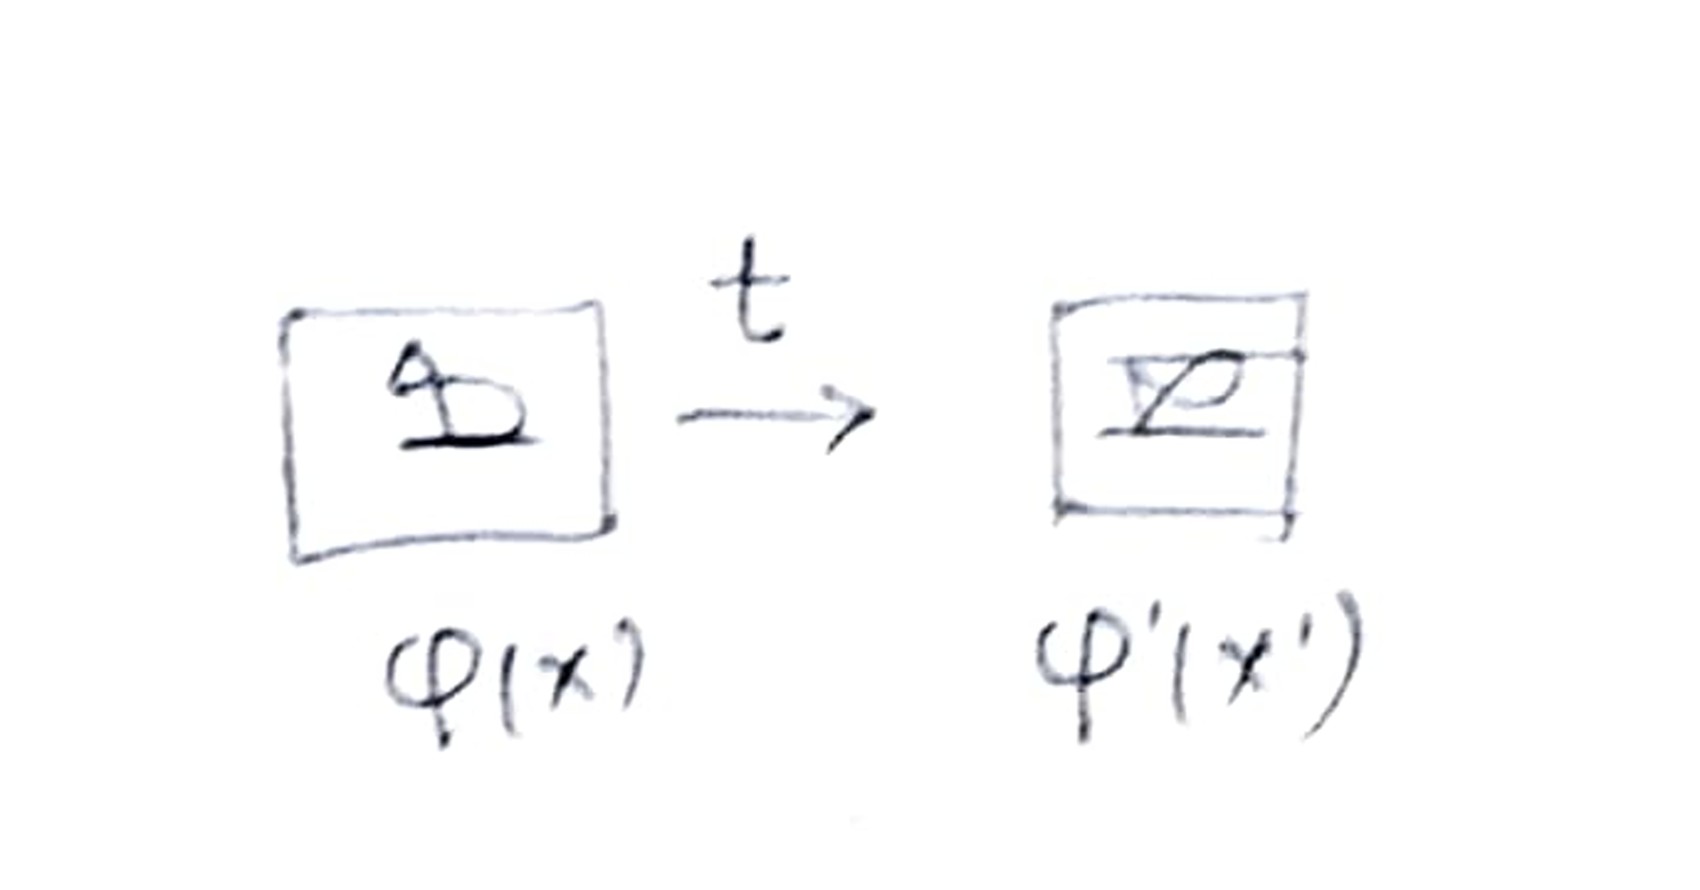 t
φ(x) φ'(x')